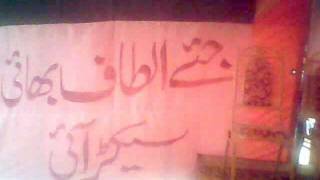 جئے الطاف بھائی
سیکٹر آئی